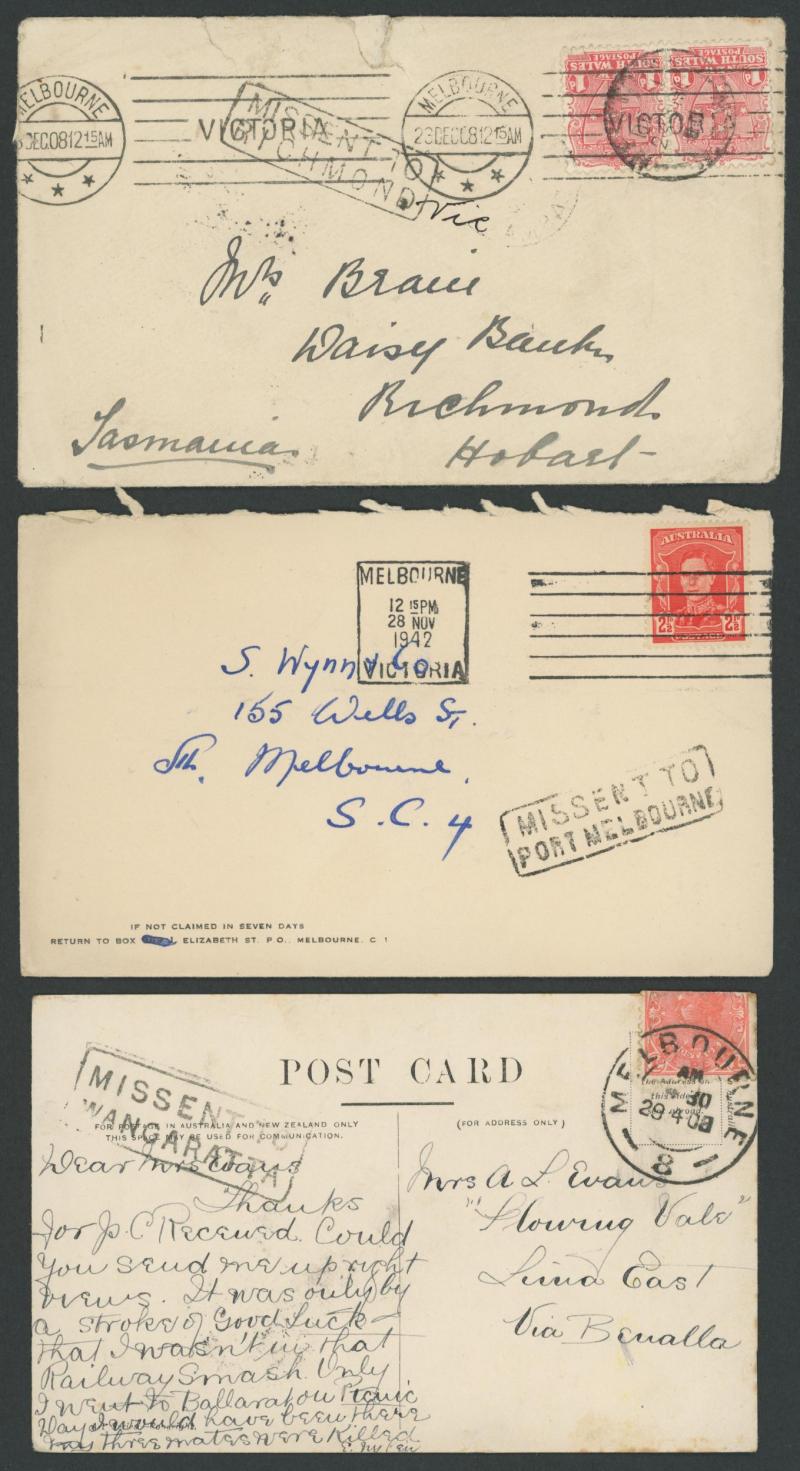 MELBOURNE
DEC.08 12 15AM
VICTORIA
MELBOURNE
23DEC0812 15AM
SOUTH WALES
POSTAGE
1D
SOUTH WALES
POSTAGE
1D
VICTORIA
MISSENT TO
RICHMOND
Vic
Mrs Brain
Daisy Bank
Richmond
Hobart
Tasmania
MELBOURNE
12 15PM
28 NOV
1942
VICTORIA
AUSTRALIA
2½D 2½D
POSTAGE
S. Wynn & Co
155 Wells St.
Sth. Melbourne.
S.C.4
MISSENT TO
PORT MELBOURNE
IF NOT CLAIMED IN SEVEN DAYS
RETURN TO BOX ELIZABETH ST. P.O., MELBOURNE. C 1
MISSENT TO
WANGARATTA
POST CARD
FOR POSTAGE IN AUSTRALIA AND NEW ZEALAND ONLY
THIS SPACE MAY BE USED FOR COMMUNICATION.
(FOR ADDRESS ONLY)
MELBOURNE
AM
30
28 4 08
8
Dear Mrs Evans
Thanks
for P.C Received. Could
you send me upright
views. It was only by
a stroke of Good Luck
that I wasn't in that
Railway Smash. Only
I went to Ballarat on Picnic
Day I would have been there
three mates were Killed
Mrs A L Evans
"Flowing Vale"
Lima East
Via Benalla